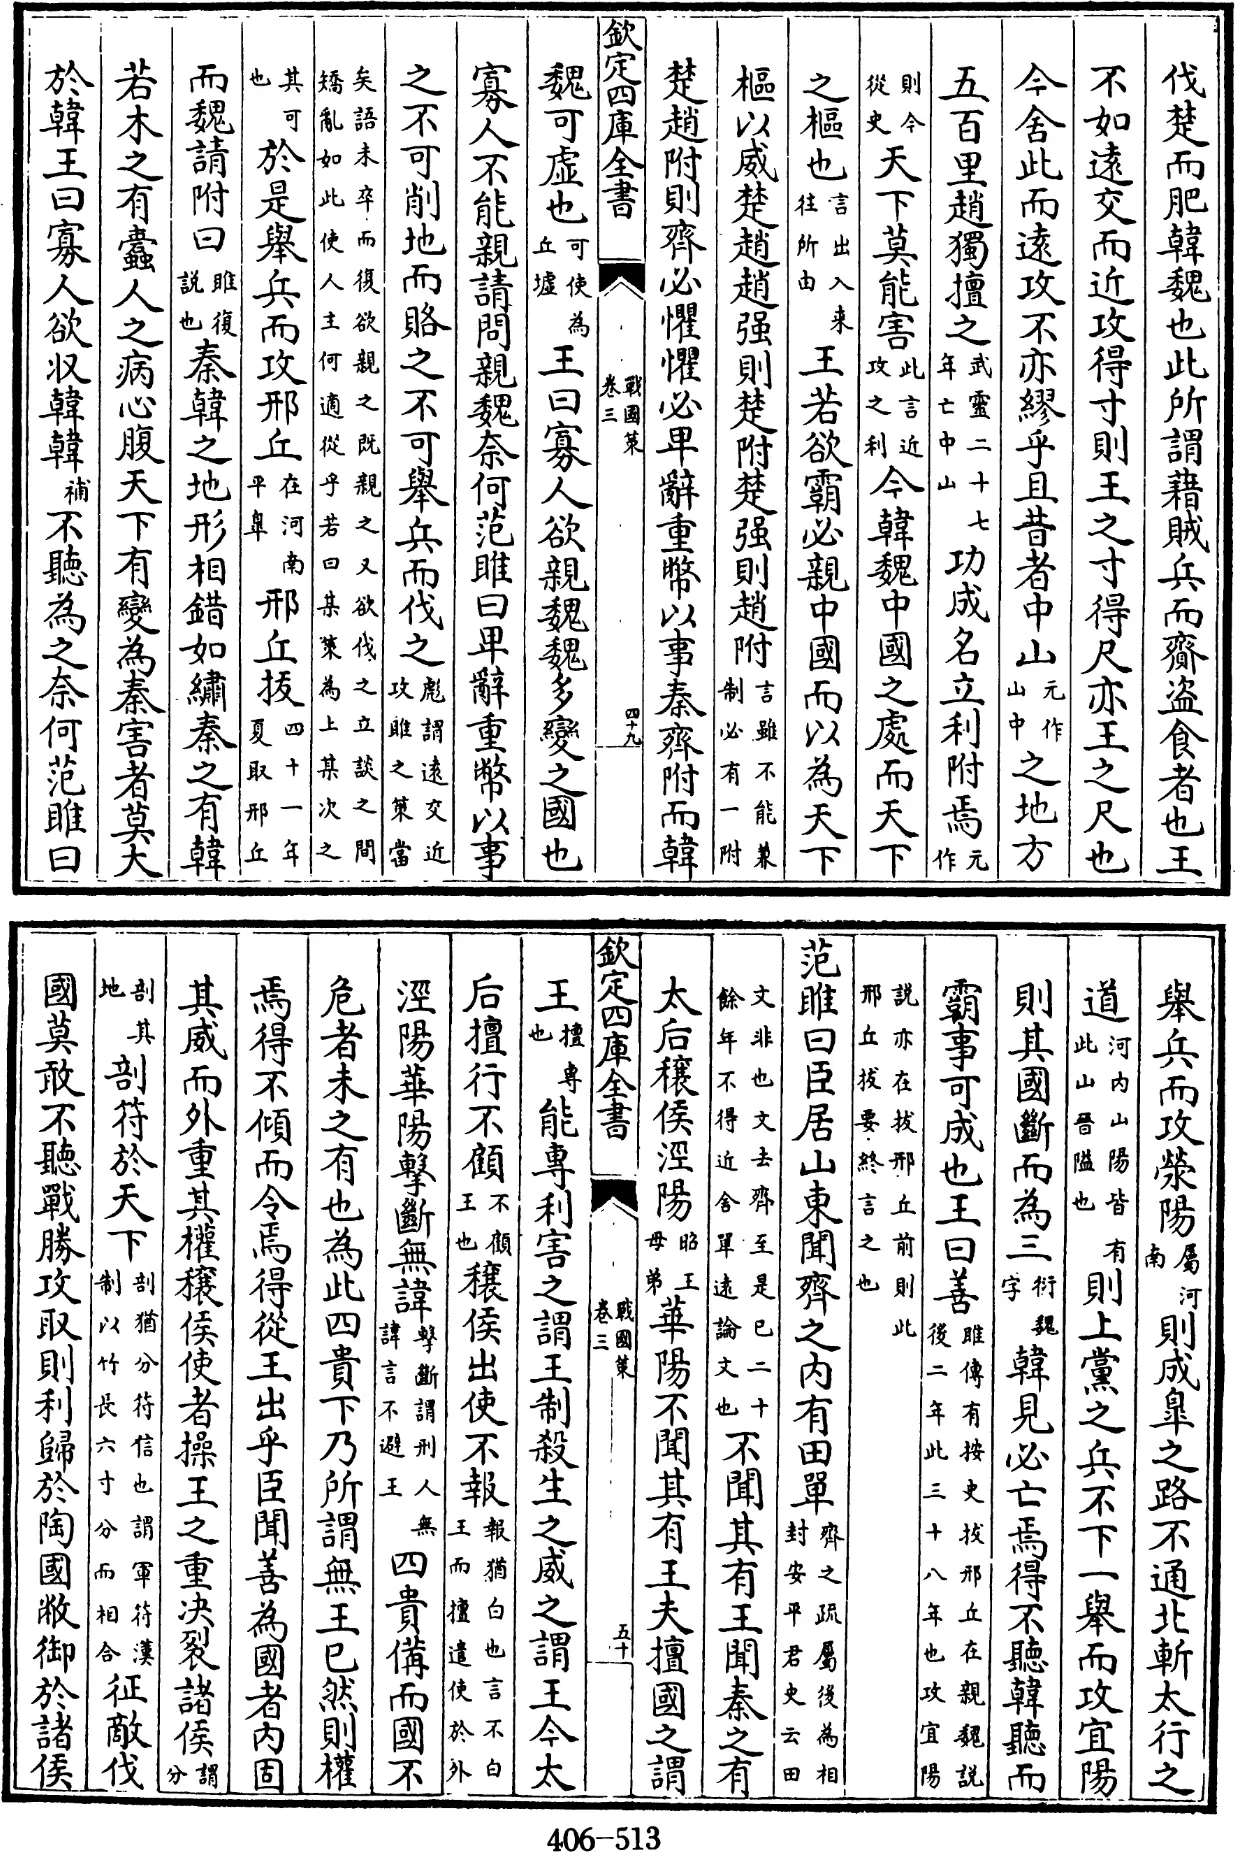 伐楚而肥韓魏也此所謂藉賊兵而齎盗食者也王
不如遠交而近攻得寸則王之寸得尺亦王之尺也
今舍此而遠攻不亦繆乎且昔者中山元作山中之地方
五百里趙獨擅之武靈二十七年亡中山功成名立利附焉元作
則今從史天下莫能害此言近攻之利今韓魏中國之處而天下
之樞也言出入来往所由王若欲霸必親中國而以為天下
樞以威楚趙趙强則楚附楚强則趙附言雖不能兼制必有一附
楚趙附則齊必懼懼必卑辭重幣以事秦齊附而韓
欽定四庫全書
戰國策
卷三
四十九
魏可虚也可使為丘墟王曰寡人欲親魏魏多變之國也
寡人不能親請問親魏奈何范雎曰卑辭重幣以事
之不可削地而賂之不可舉兵而伐之彪謂遠交近攻雎之策當
矣語未卒而復欲親之既親之又欲伐之立談之間矯亂如此使人主何適從乎若曰某策為上某次之
其可也於是舉兵而攻邢丘在河南平臯邢丘拔四十一年夏取邢丘
而魏請附曰雎復説也秦韓之地形相錯如繡秦之有韓
若木之有蠹人之病心腹天下有變為秦害者莫大
於韓王曰寡人欲収韓韓補不聽為之奈何范雎曰
舉兵而攻滎陽屬河南則成臯之路不通北斬太行之
道河内山陽皆有此山晉隘也則上黨之兵不下一舉而攻宜陽
則其國斷而為三衍魏字韓見必亡焉得不聽韓聽而
霸事可成也王曰善雎傳有按史拔邢丘在親魏説後二年此三十八年也攻宜陽
説亦在拔邢丘前則此邢丘拔要終言之也
范雎曰臣居山東聞齊之内有田單齊之疏屬後為相封安平君史云田
文非也文去齊至是已二十餘年不得近舍單遠論文也不聞其有王聞秦之有
太后穰侯涇陽昭王母弟華陽不聞其有王夫擅國之謂
欽定四庫全書
戰國策
卷三
五十
王擅專也能專利害之謂王制殺生之威之謂王今太
后擅行不顧不顧王也穰侯出使不報報猶白也言不白王而擅遣使於外
涇陽華陽擊斷無諱擊斷謂刑人無諱言不避王四貴備而國不
危者未之有也為此四貴下乃所謂無王已然則權
焉得不傾而令焉得從王出乎臣聞善為國者内固
其威而外重其權穰侯使者操王之重決裂諸侯謂分
剖其地剖符於天下剖猶分符信也謂軍符漢制以竹長六寸分而相合征敵伐
國莫敢不聽戰勝攻取則利歸於陶國敝御於諸侯
406-513